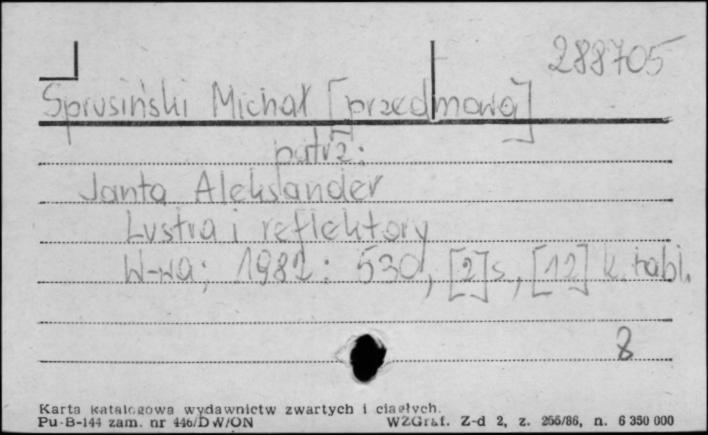 288705
Sprusiński Michał [przedmowa]
patrz:
Janta Aleksander
Lustra i reflektory
W-wa; 1982: 530, [2] s., [12] k. tabl.
8
Karta katalogowa wydawnictw zwartych i ciągłych.
Pu-B-144 zam. nr 446/DW/ON WZGraf. Z-d 2, z. 266/86, n. 6 350 000